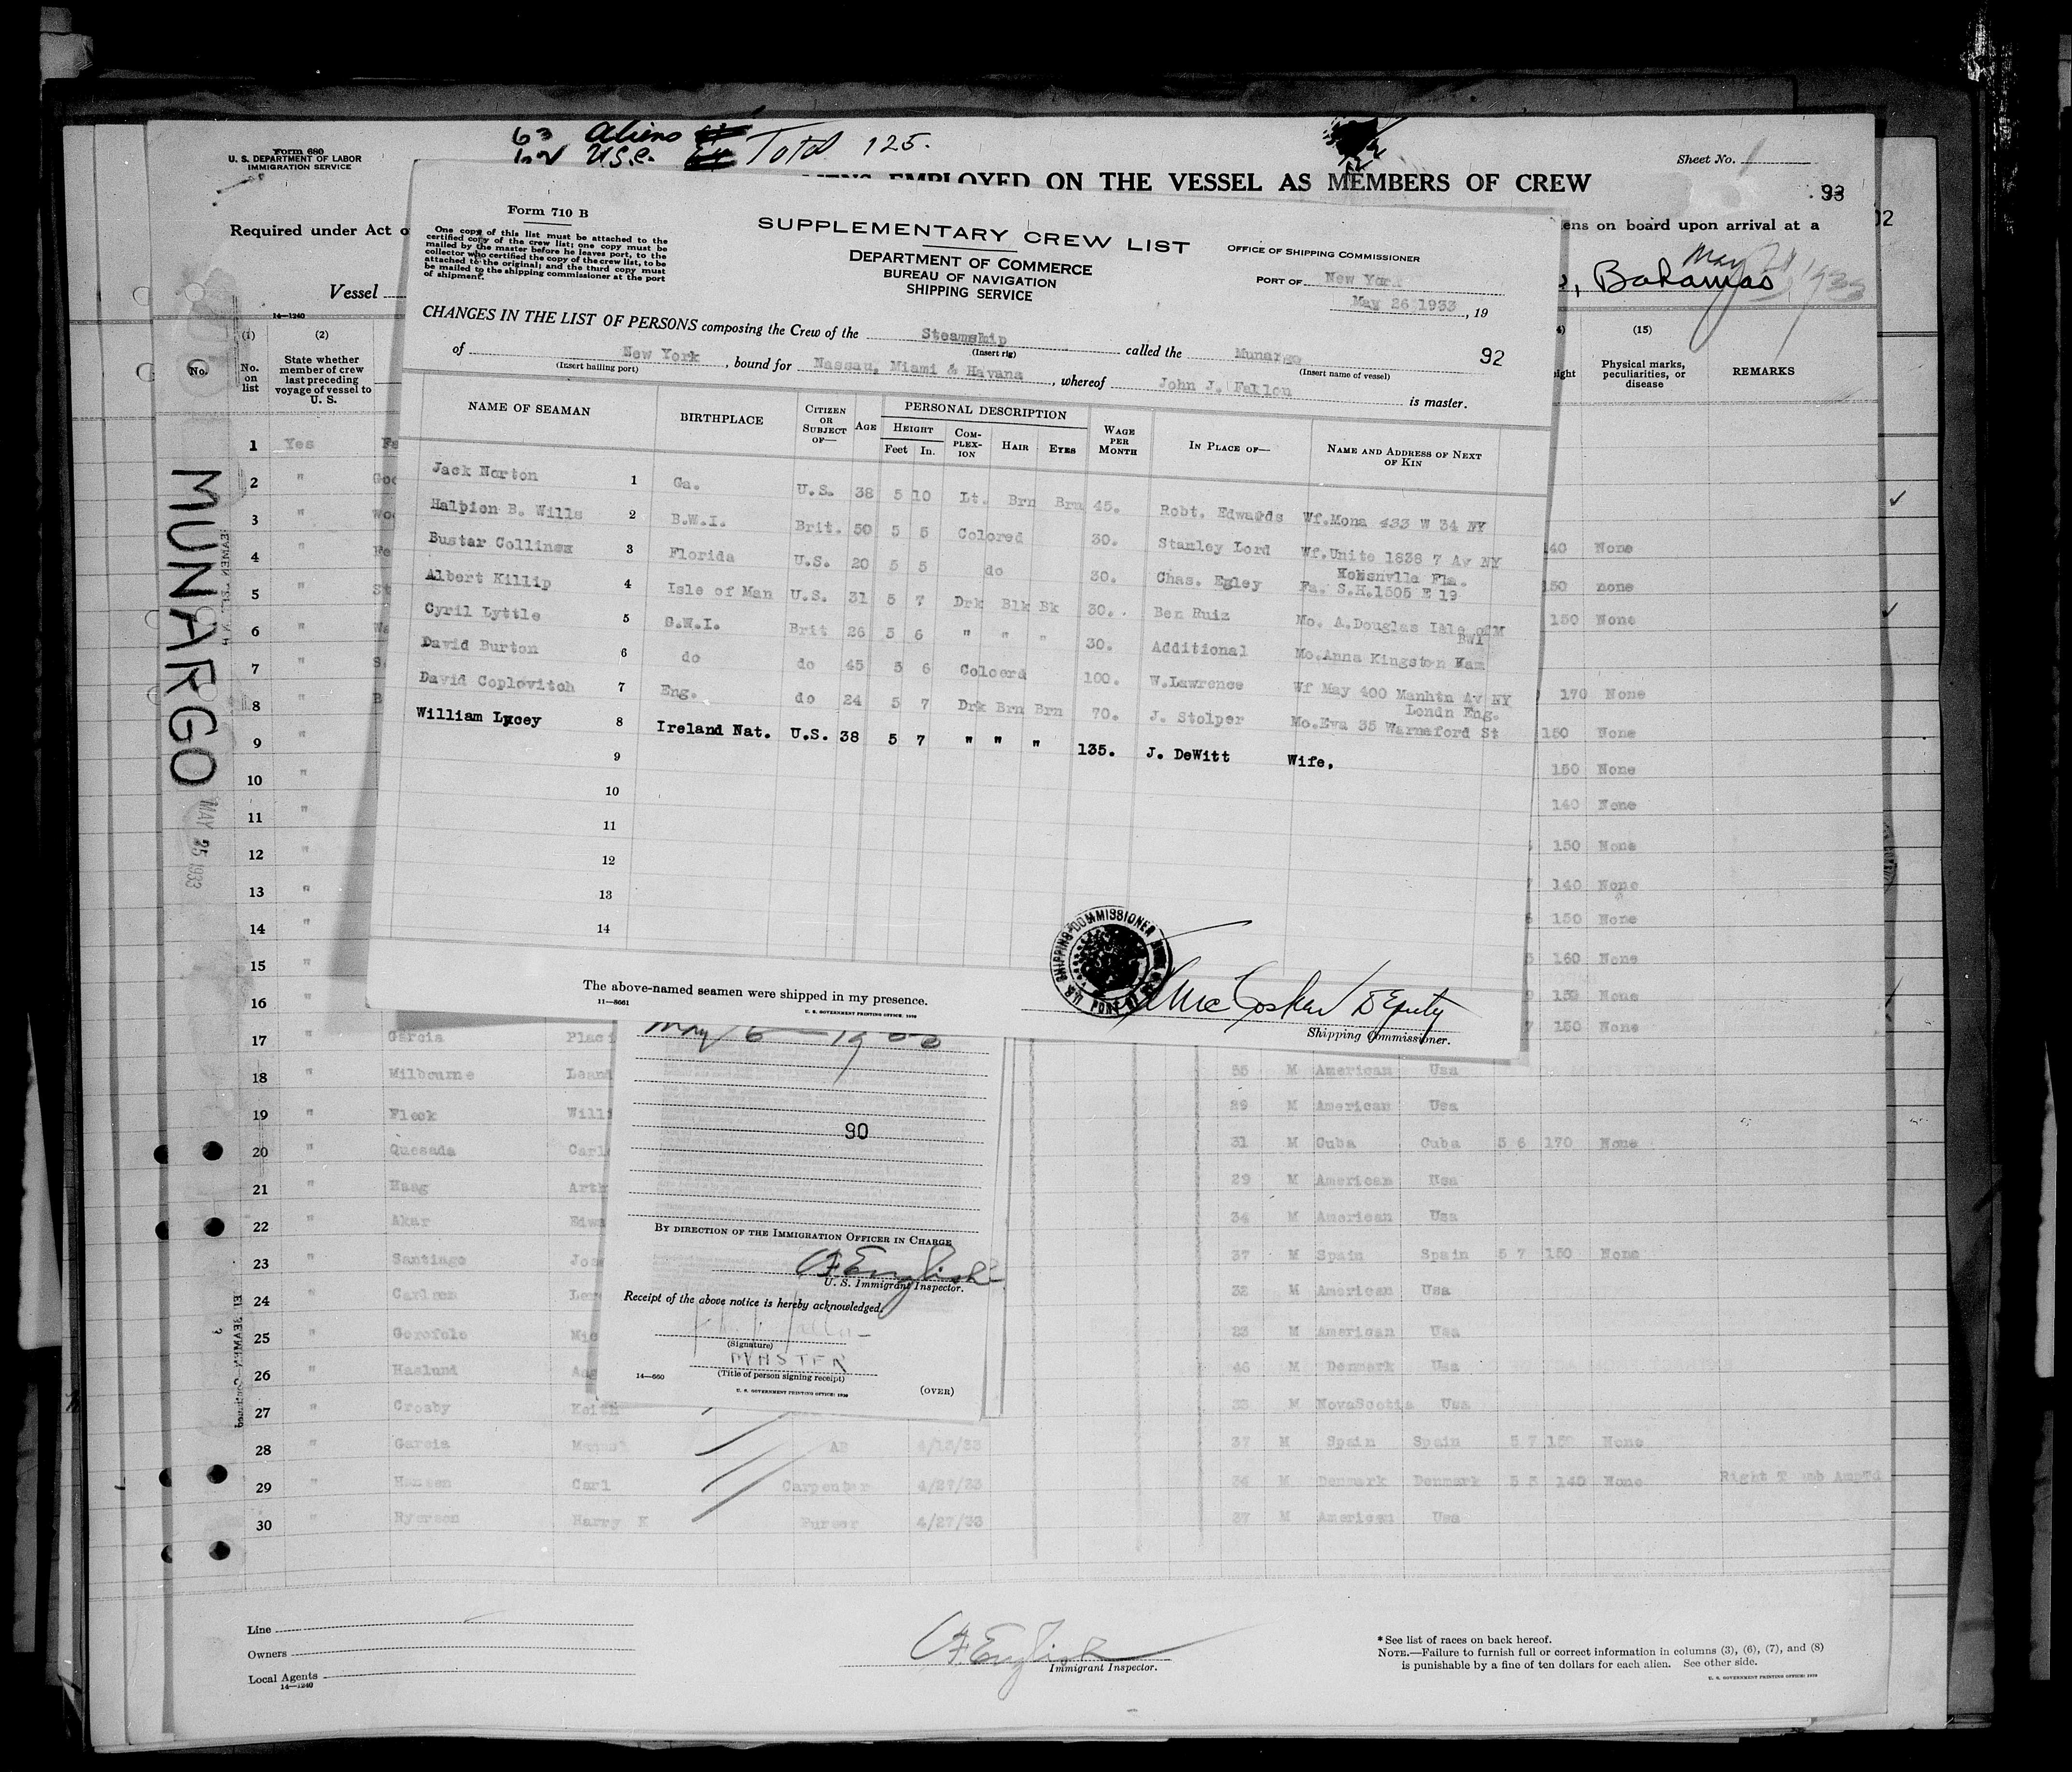 63 Aliens
U.S.C. Total 125.
Form 680
U. S. DEPARTMENT OF LABOR
IMMIGRATION SERVICE
Sheet No. 1
EMPLOYED ON THE VESSEL AS MEMBERS OF CREW
93
Required under Act o
ens on board upon arrival at a
02
Vessel
, Bahamas
May 1933
14—1240
(1) (2)
No. on list
State whether member of crew last preceding voyage of vessel to U. S.
(15)
Physical marks, peculiarities, or disease
REMARKS
No.
MUNARGO
MAY 25 1933
Form 710 B
One copy of this list must be attached to the
certified copy of the crew list; one copy must be
mailed by the master before he leaves port, to the
collector who certified the copy of the crew list, to be
attached to the original; and the third copy must
be mailed to the shipping commissioner at the port
of shipment.
SUPPLEMENTARY CREW LIST
DEPARTMENT OF COMMERCE
BUREAU OF NAVIGATION
SHIPPING SERVICE
OFFICE OF SHIPPING COMMISSIONER
PORT OF New York
May 26 1933, 19
CHANGES IN THE LIST OF PERSONS composing the Crew of the Steamship called the Munargo
(Insert rig) (Insert name of vessel)
92
of New York, bound for Nassau, Miami & Havana, whereof John J. Fallon is master.
(Insert hailing port)
NAME OF SEAMAN BIRTHPLACE CITIZEN OR SUBJECT OF— AGE PERSONAL DESCRIPTION HEIGHT Feet In. COMPLEXION HAIR EYES WAGE PER MONTH IN PLACE OF— NAME AND ADDRESS OF NEXT OF KIN
Jack Norton 1 Ga. U.S. 38 5 10 Lt. Brn Brn 45. Robt. Edwards Wf.Mona 433 W 34 NY
Halpion B. Wills 2 B.W.I. Brit. 50 5 5 Colored 30. Stanley Lord Wf.Unite 1838 7 Av NY
Bustar Collinsx 3 Florida U.S. 20 5 5 do 30. Chas. Egley Fa. S.H.1505 E 19
Albert Killip 4 Isle of Man U.S. 31 5 7 Drk Blk Bk 30. Ben Ruiz Mo. A.Douglas Isle of M
Cyril Lyttle 5 B.W.I. Brit 26 5 6 " " " 30. Additional Mo.Anna Kingston Jam BWI
David Burton 6 do do 45 5 6 Colored 100. W.Lawrence Wf May 400 Manhtn Av NY
David Coplovitch 7 Eng. do 24 5 7 Drk Brn Brn 70. J. Stolper Mo.Eva 35 Warneford St Londn Eng.
William Lxcey 8 Ireland Nat. U.S. 38 5 7 " " " 135. J. DeWitt Wife,
9
10
11
12
13
14
The above-named seamen were shipped in my presence.
11—8661
U. S. GOVERNMENT PRINTING OFFICE: 1930
Deputy
Shipping Commissioner.
1 Yes
2 "
3 "
4 " 140 None
5 " 150 none
6 " 150 None
7 "
8 " 170 None
9 " 150 None
10 " 150 None
11 " 140 None
12 " 150 None
13 " 140 None
14 " 150 None
15 " 160 None
16 " None
17 " Garcia 150 None
18 " Milbourne 55 M American Usa
19 " Fleck 29 M American Usa
20 " Quesada 31 M Cuba Cuba 5 6 170 None
21 " Haag 29 M American Usa
22 " Akar 34 M American Usa
23 " Santiago 37 M Spain Spain 5 7 150 None
24 " Carlsen 32 M American Usa
25 " Gerofolo 23 M American Usa
26 " Haslund 46 M Denmark Usa
27 " Crosby Keith M NovaScotia Usa
28 " Garcia AB 4/15/33 37 M Spain Spain 5 7 None
29 " Hansen Carl Carpenter 4/27/33 34 M Denmark Denmark 5 5 140 None Right
30 " Ryerson Harry K Purser 4/27/33 37 M American Usa
90
BY DIRECTION OF THE IMMIGRATION OFFICER IN CHARGE
English
U. S. Immigrant Inspector.
Receipt of the above notice is hereby acknowledged.
(Signature)
MASTER
(Title of person signing receipt)
14—660
U. S. GOVERNMENT PRINTING OFFICE: 1930
(OVER)
Line
Owners
Local Agents
14—1240
English
Immigrant Inspector.
* See list of races on back hereof.
NOTE.—Failure to furnish full or correct information in columns (3), (6), (7), and (8)
is punishable by a fine of ten dollars for each alien. See other side.
U. S. GOVERNMENT PRINTING OFFICE: 1929